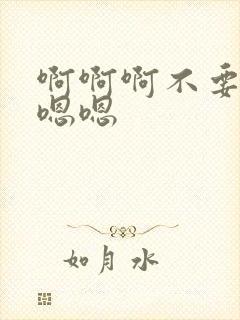 啊啊啊不要
嗯嗯
如月水